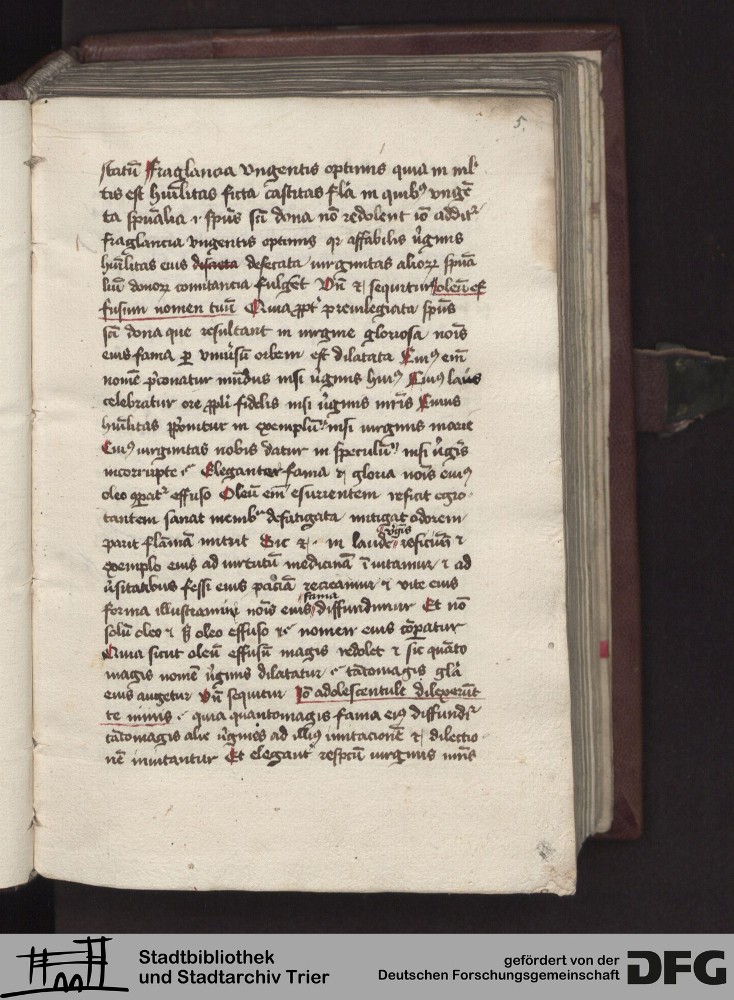 5.
statū Fraglancia vngentis optimis quia in ml'
tis est hūilitas ficta castitas fl'a in quib9 vngē
ta sp̄ualia sp̄us sc̄i dona nō redolent iō addit'
fraglancia vngentis optimis qr affabilis v'ginis
hūilitas eius defecata virginitas alior sp̄ua
liū donor comitancia fulget Vn̄ sequitur oleū ef
fusum nomen tuū Quia ppt' preuilegiata sp̄us
sc̄i dona que resultant in virgine gloriosa nois
eius fama p vniu'sū orbem est dilatata Cui9 em̄
nomē p'conatur mūdus nisi v'ginis hui9 Cui9 laus
celebratur ore ppli fidelis nisi v'ginis mr̄is Cuius
hūilitas pponitur in exemplū nisi virginis marie
Cui9 virginitas nobis datur in speculū nisi v'gīs
incorrupte Eleganter fama gloria nois eius
oleo 9parat' effuso Oleū em̄ esurientem reficit egro
tantem sanat memb'a defatigata mitigat odorem
parit flāmā nutrit Sic in laude v'ginis reficim
exemplo eius ad virtutū medicinā īuitamur ad
fessi eius recreamur vite eius
forma illustramur nois eius fama diffundimur Et nō
solū oleo s oleo effuso nomen eius cōparatur
Quia sicut oleū effusū magis redolet sic quāto
magis nomē v'ginis dilatatur tātomagis gl'a
eius augetur Vn̄ sequitur Iō adolescentule dilexerūt
te nimis quia quantomagis fama ei9 diffundit'
tātomagis alie v'gines ad illi9 imitacionē dilectio
nē inuitantur Et elegant' respcū virginis nr̄is
Stadtbibliothek
und Stadtarchiv Trier
gefördert von der
Deutschen Forschungsgemeinschaft
DFG